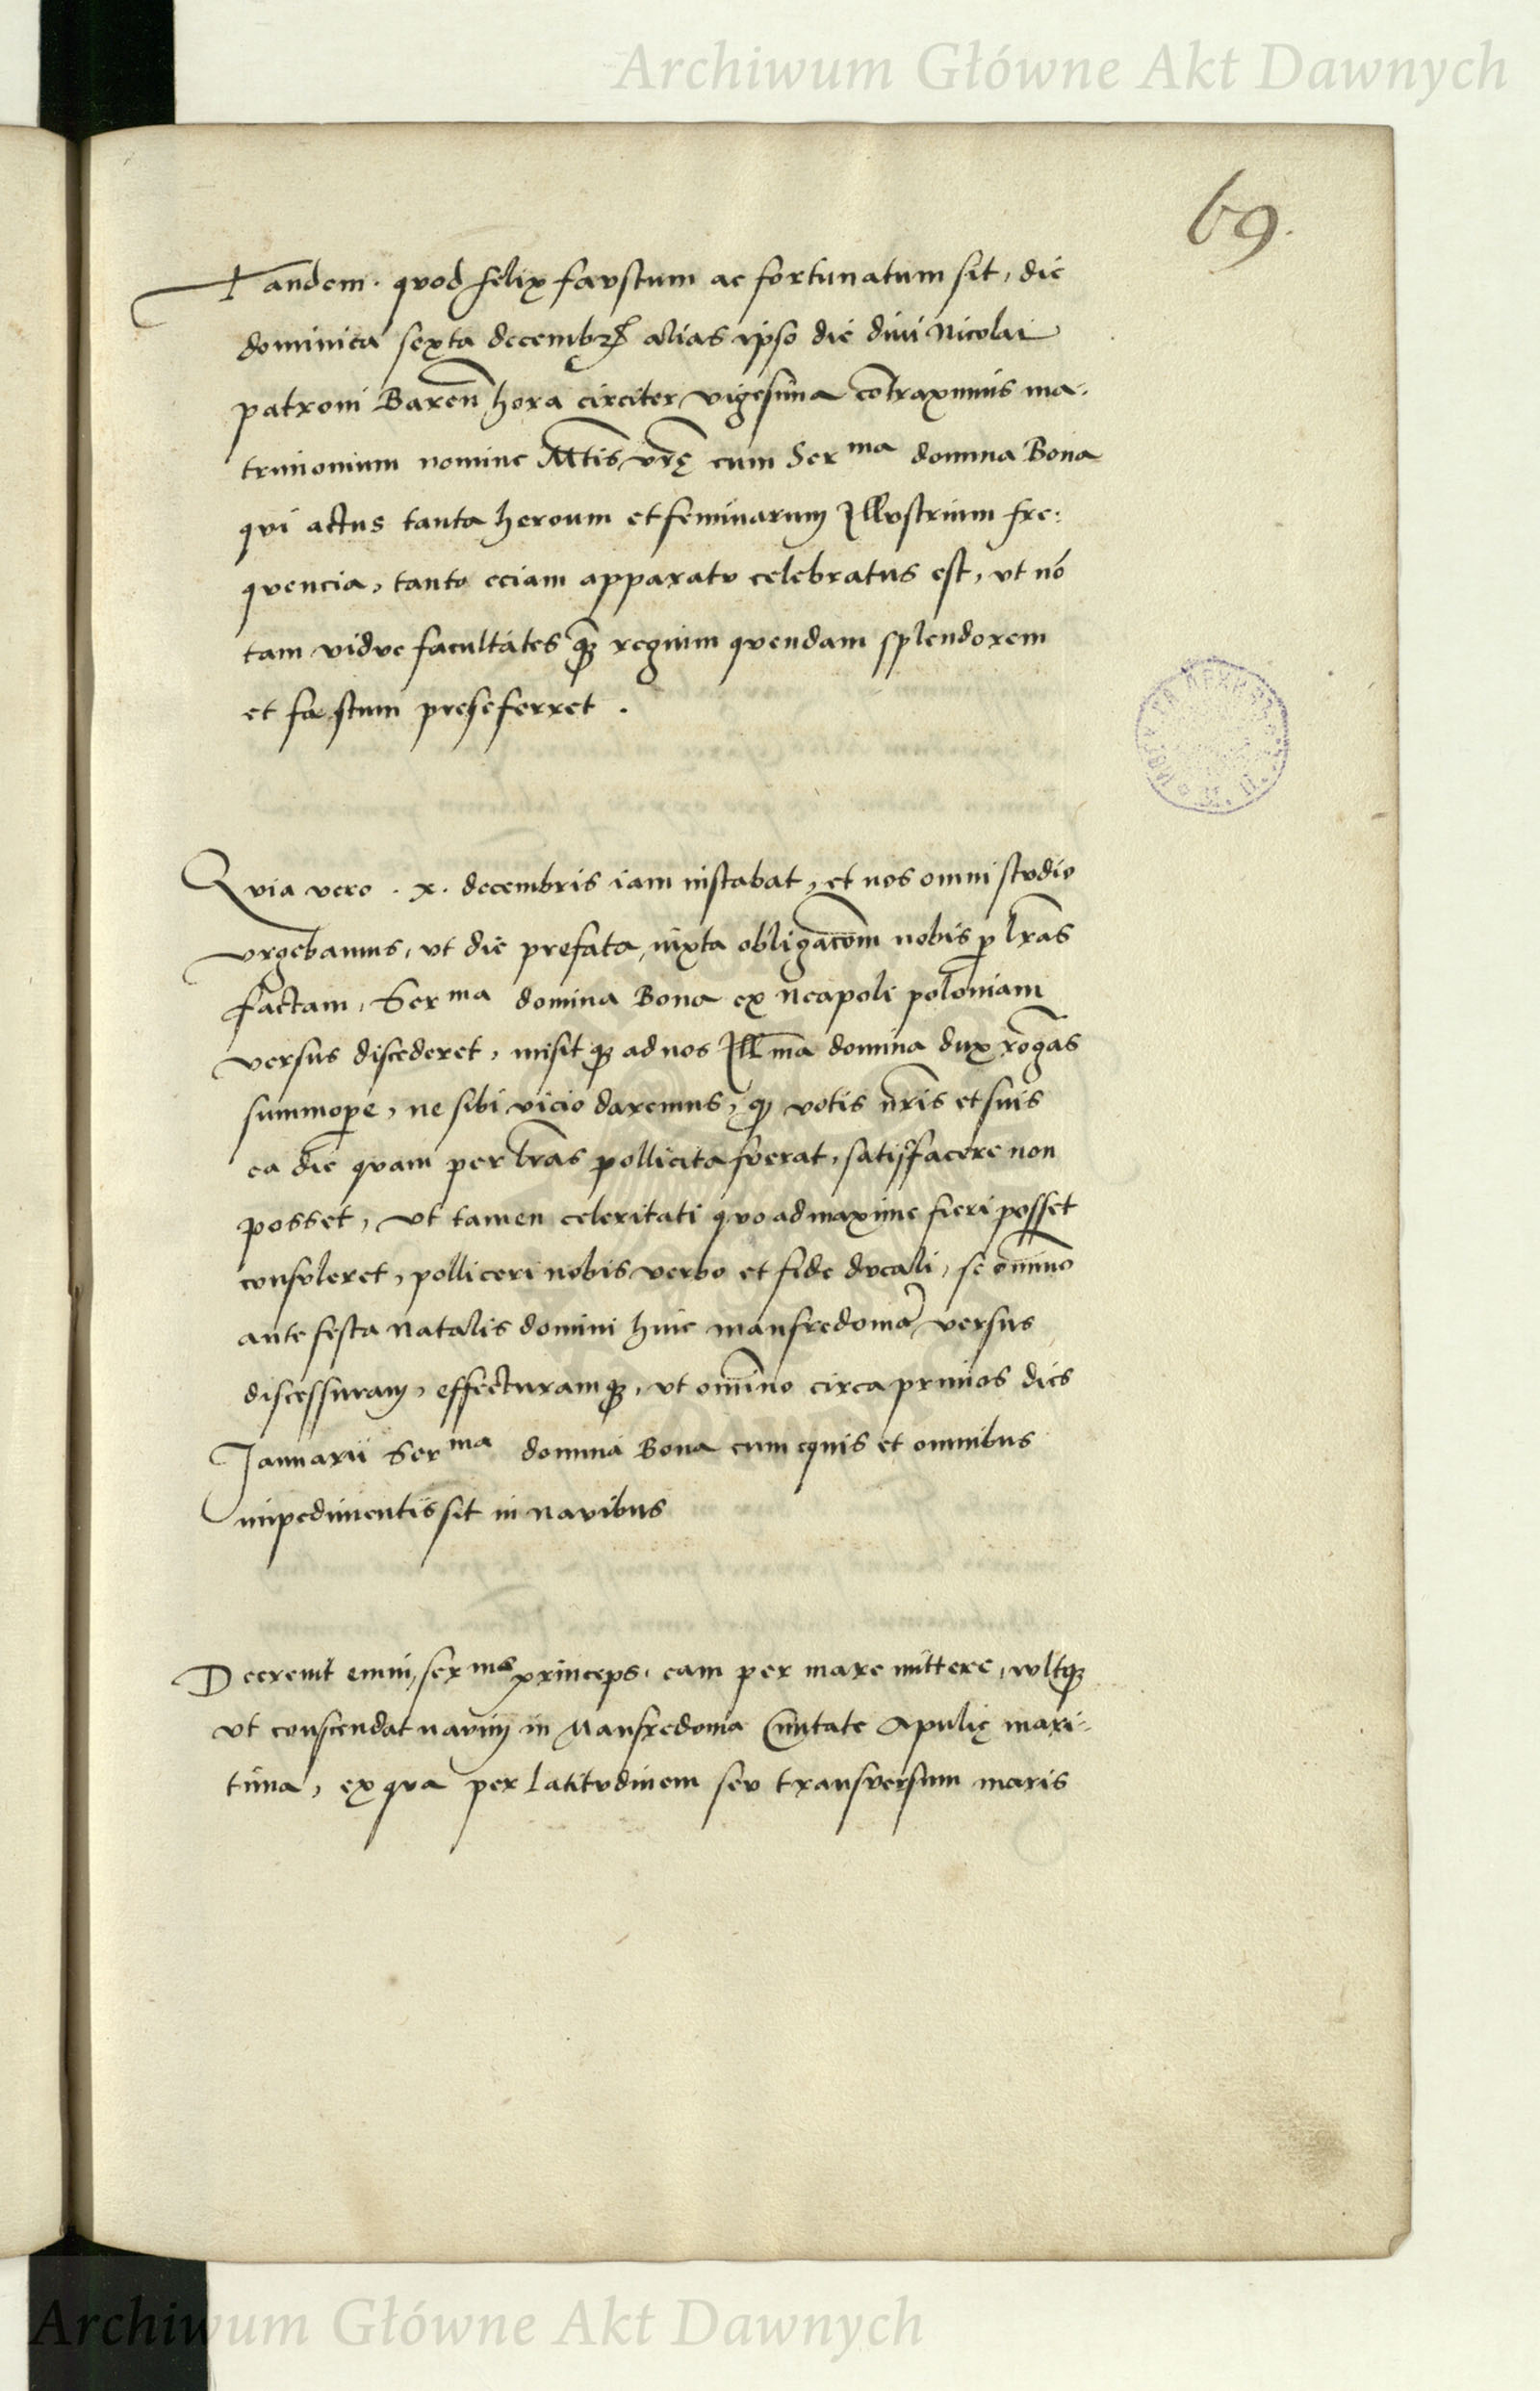 Archiwum Główne Akt Dawnych
69.
Tandem. quod felix faustum ac fortunatum sit, die
dominica sexta decembrꝭ alias ipso die diui Nicolai
patroni Bareñ hora circiter vigesima cōtraximus ma-
trimonium nomine Mtis vrę cum Ser ma domina Bona
qui actus tanta heroum et feminarum Illustrium fre-
quencia, tanto eciam apparatu celebratus est, vt nō
tam vidue facultates qꝫ regium quendam splendorem
et fastum preseferret.
Quia vero . x. decembris iam instabat, et nos omni studio
vrgebamus, vt die prefata, iuxta obligacōem nobis ꝑ lr̄as
factam, Ser ma domina Bona ex Neapoli poloniam
versus discederet, misit qꝫ ad nos Ill ma domina dux rogās
summoꝑe, ne sibi vicio daremus, qꝫ votis nr̄is et suis
ea die quam per lr̄as pollicita fuerat, satisfacere non
posset, vt tamen celeritati quo ad maxime fieri posset
consuleret, polliceri nobis verbo et fide ducali, se om̄ino
ante festa natalis domini hinc manfredoniā versus
discessuram, effecturamqꝫ, vt om̄ino circa primos dies
Januarii Ser ma domina Bona cum equis et omnibus
impedimentis sit in navibus
Decreuit enim, ser ma princeps. eam per mare mittere, vultqꝫ
vt conscendat navim in Manfredonia Ciuitate Apulię mari-
tima, ex qua per latitudinem seu transversum maris
Archiwum Główne Akt Dawnych